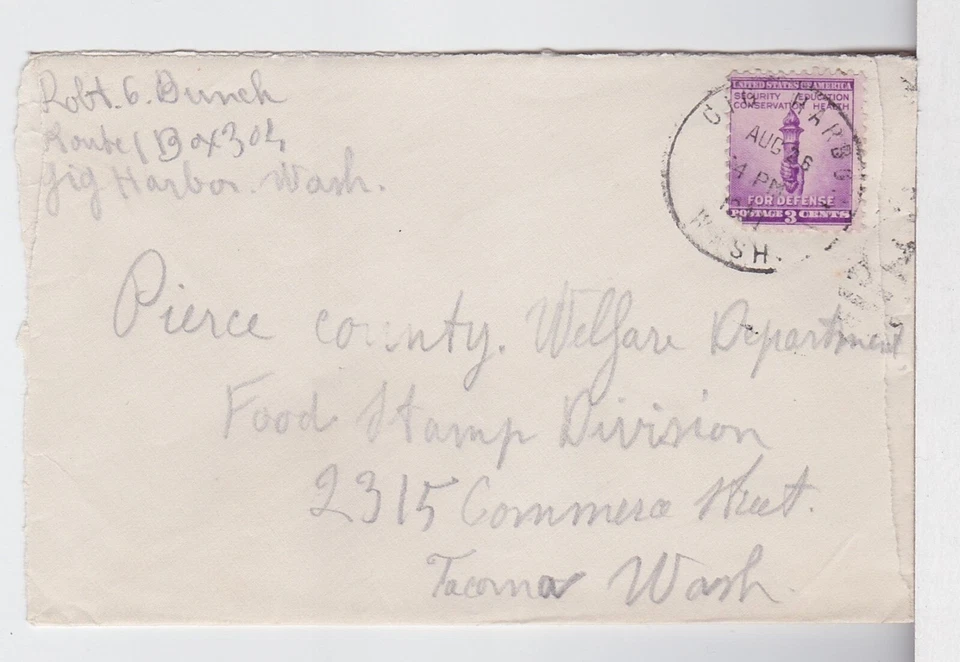 Robt. G. Bunch
Route 1 Box 304
Gig Harbor. Wash.
GIG HARBOR
AUG 26
4 PM
WASH.
UNITED STATES OF AMERICA
SECURITY EDUCATION
CONSERVATION HEALTH
FOR DEFENSE
POSTAGE 3 CENTS
Pierce county. Welfare Department
Food Stamp Division
2315 Commerce Street.
Tacoma Wash.